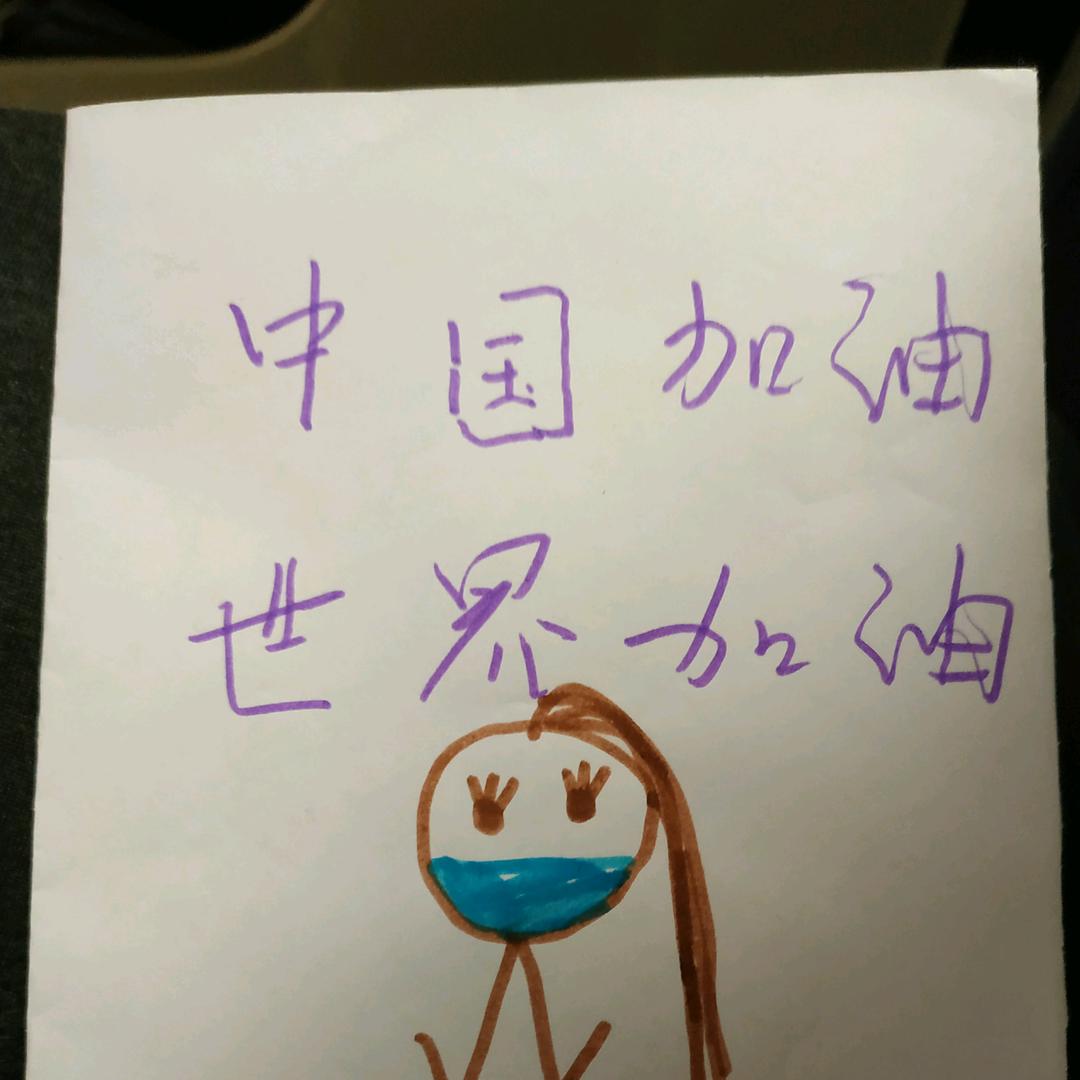 中国加油
世界加油